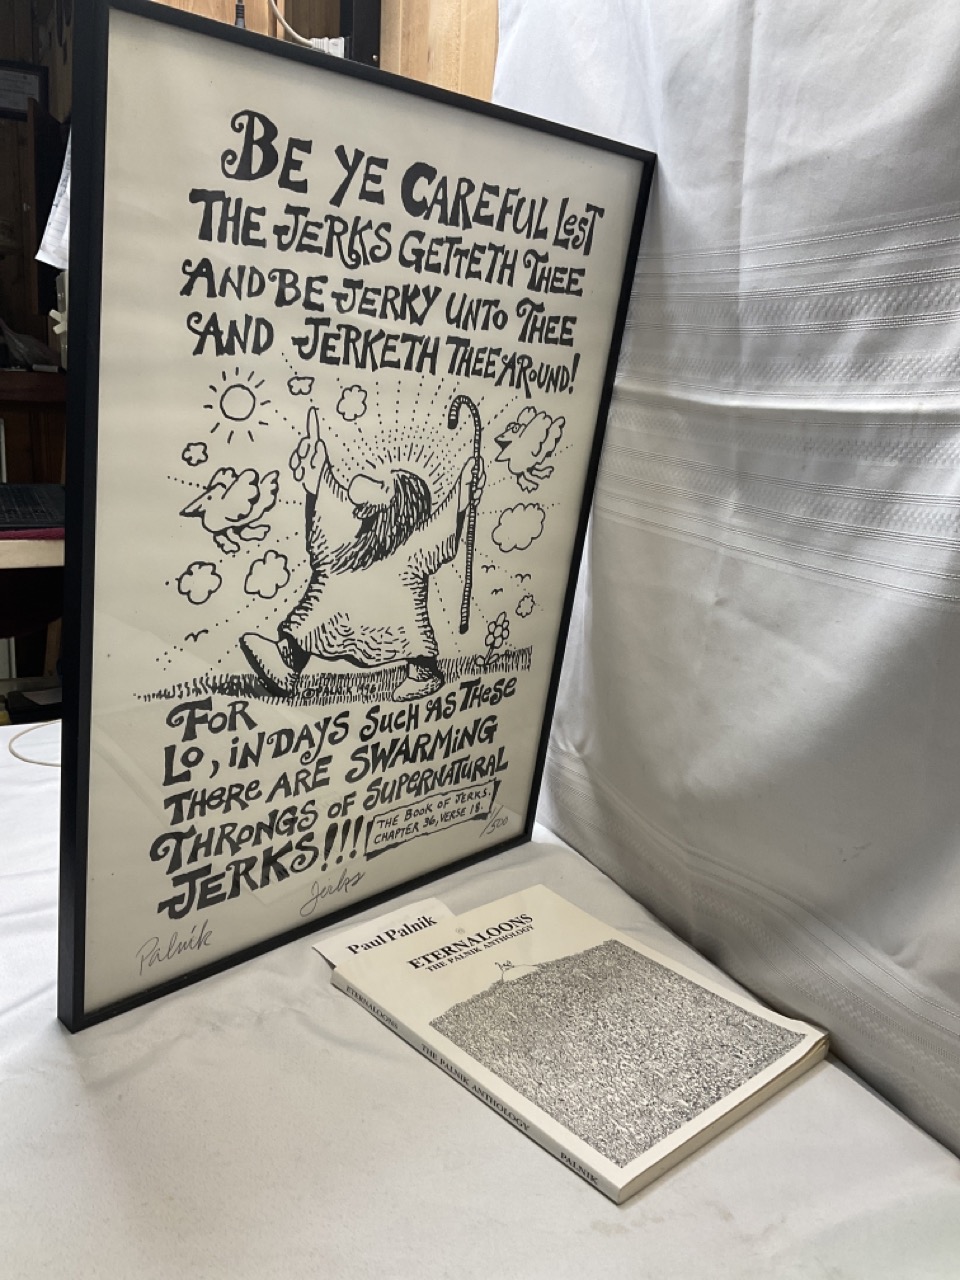 BE YE CAREFUL LesT
THE JERKS GETTETH THEE
AND BE JERKY UNTO THEE
AND JERKETH THEE AROUND!
© PALNIK
FOR
LO, iN DAYS SUCH AS THESE
THeRe ARE SWARMiNG
THRONGS OF SUPERNATURAL
JERKS!!!
THE BOOK OF JERKS.
CHAPTER 36, VERSE 18.
/500
Palnik
Jerks
Paul Palnik
ETERNALOONS
THE PALNIK ANTHOLOGY
ETERNALOONS THE PALNIK ANTHOLOGY PALNIK